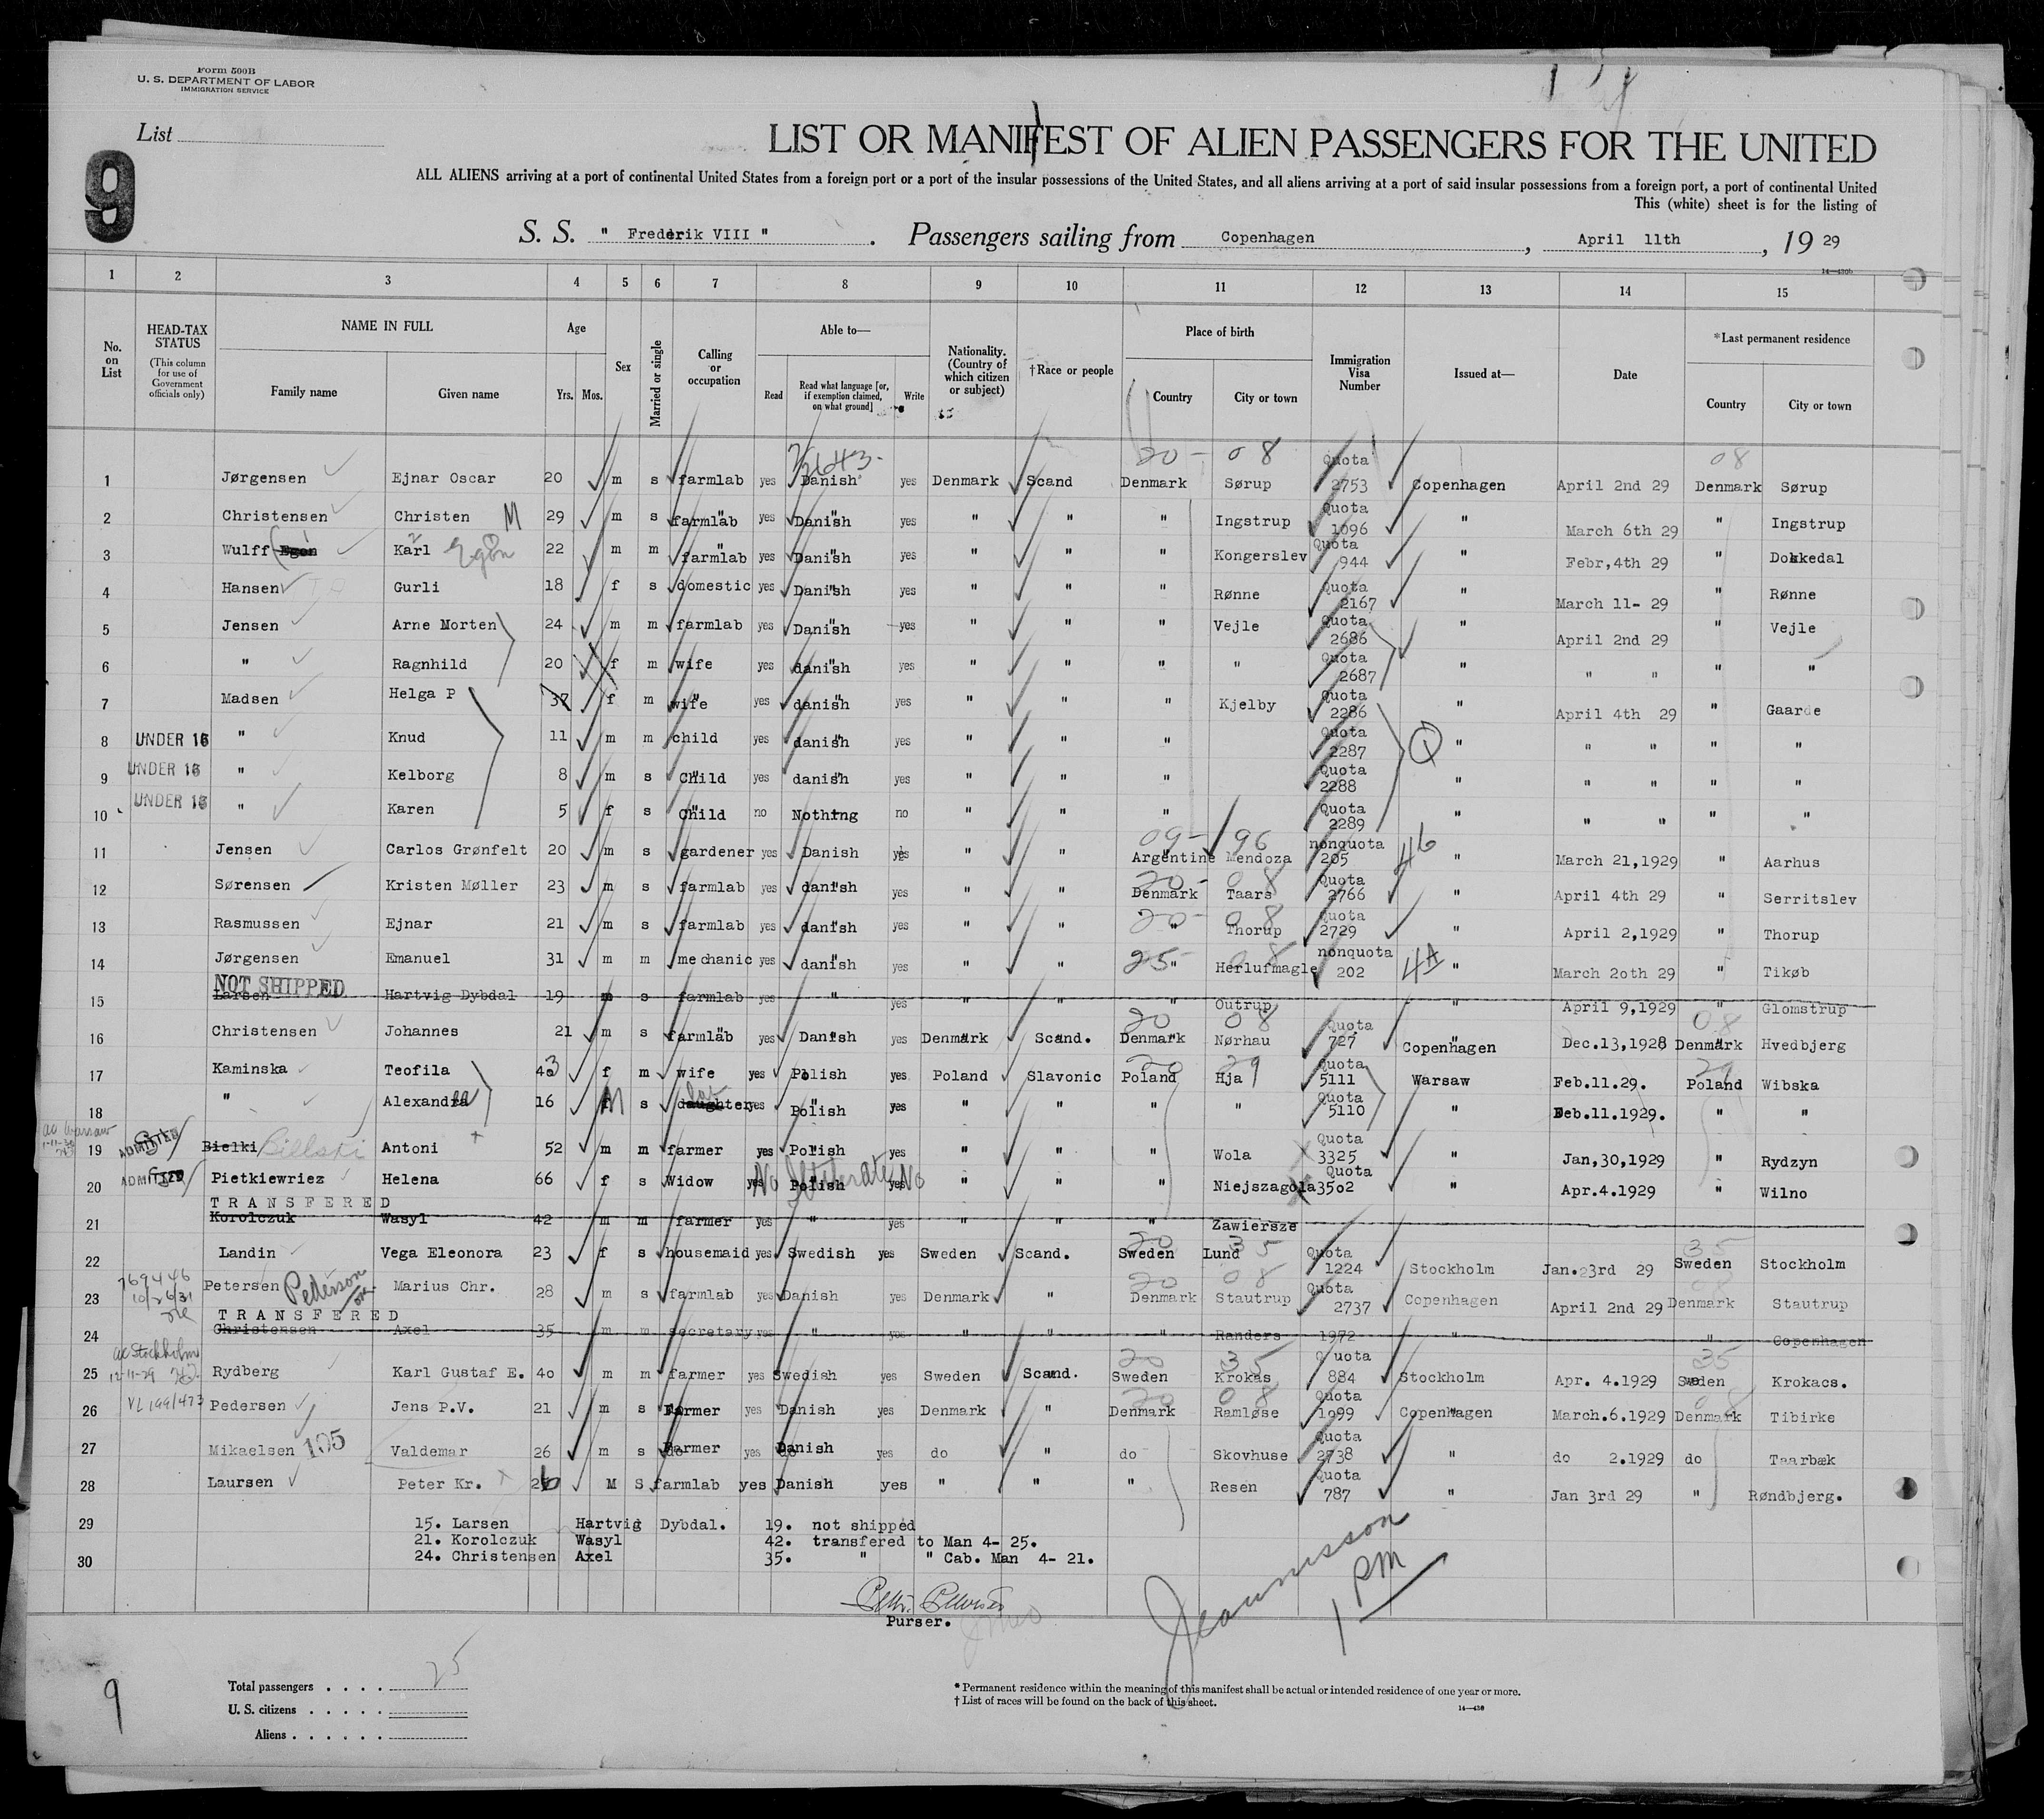 Form 500B
U. S. DEPARTMENT OF LABOR
IMMIGRATION SERVICE
List
9
LIST OR MANIFEST OF ALIEN PASSENGERS FOR THE UNITED
ALL ALIENS arriving at a port of continental United States from a foreign port or a port of the insular possessions of the United States, and all aliens arriving at a port of said insular possessions from a foreign port, a port of continental United
This (white) sheet is for the listing of
S. S. " Frederik VIII " . Passengers sailing from Copenhagen , April 11th , 19 29
14—430b
1 2 3 4 5 6 7 8 9 10 11 12 13 14 15
No. on List
HEAD-TAX STATUS
(This column for use of Government officials only)
NAME IN FULL
Family name Given name
Age
Yrs. Mos.
Sex
Married or single
Calling or occupation
Able to—
Read Read what language [or, if exemption claimed, on what ground] Write
Nationality. (Country of which citizen or subject)
†Race or people
Place of birth
Country City or town
Immigration Visa Number
Issued at—
Date
*Last permanent residence
Country City or town
2643- 20- 08 08
1 Jørgensen Ejnar Oscar 20 m s farmlab yes Danish yes Denmark Scand Denmark Sørup Quota 2753 Copenhagen April 2nd 29 Denmark Sørup
2 Christensen Christen M 29 m s farmlab yes Danish yes " " " Ingstrup Quota 1096 " March 6th 29 " Ingstrup
3 Wulff Egon Karl Egon 22 m m farmlab yes Danish yes " " " Kongerslev Quota 944 " Febr,4th 29 " Dokkedal
4 Hansen Gurli 18 f s domestic yes Danish yes " " " Rønne Quota 2167 " March 11- 29 " Rønne
5 Jensen Arne Morten 24 m m farmlab yes Danish yes " " " Vejle Quota 2686 " April 2nd 29 " Vejle
6 " Ragnhild 20 f m wife yes danish yes " " " " Quota 2687 " " " " "
7 Madsen Helga P 37 f m wife yes danish yes " " " Kjelby Quota 2286 " April 4th 29 " Gaarde
8 UNDER 16 " Knud 11 m m child yes danish yes " " " Quota 2287 Q " " " " "
9 UNDER 16 " Kelborg 8 m s Child yes danish yes " " " Quota 2288 " " " " "
10 UNDER 16 " Karen 5 f s Child no Nothing no " " " Quota 2289 " " " " "
09- 96
11 Jensen Carlos Grønfelt 20 m s gardener yes Danish yes " " Argentine Mendoza nonquota 205 4b " March 21,1929 " Aarhus
20- 08
12 Sørensen Kristen Møller 23 m s farmlab yes danish yes " " Denmark Taars Quota 2766 " April 4th 29 " Serritslev
20- 08
13 Rasmussen Ejnar 21 m s farmlab yes danish yes " " " Thorup Quota 2729 " April 2,1929 " Thorup
25- 08
14 Jørgensen Emanuel 31 m m mechanic yes danish yes " " " Herlufmagle nonquota 202 4A " March 2oth 29 " Tikøb
NOT SHIPPED
15 Larsen Hartvig Dybdal 19 m s farmlab yes " yes " " " Outrup " April 9,1929 " Glomstrup
20 08 08
16 Christensen Johannes 21 m s farmlab yes Danish yes Denmark Scand. Denmark Nørhau Quota 727 Copenhagen Dec.13,1928 Denmark Hvedbjerg
20 29 29
17 Kaminska Teofila 43 f m wife yes Polish yes Poland Slavonic Poland Hja Quota 5111 Warsaw Feb.11.29. Poland Wibska
18 " Alexander 16 M s daughter lab yes Polish yes " " " " Quota 5110 " Feb.11.1929. " "
19 ADMITTED Bielki Billski Antoni 52 m m farmer yes Polish yes " " " Wola Quota 3325 " Jan,30,1929 " Rydzyn
20 ADMITTED Pietkiewriez Helena 66 f s Widow yes No Polish Iliterate yes No " " " Niejszagola Quota 35o2 " Apr.4.1929 " Wilno
TRANSFERED
21 Korolczuk Wasyl 42 m m farmer yes " yes " " " Zawiersze
20 35 35
22 Landin Vega Eleonora 23 f s housemaid yes Swedish yes Sweden Scand. Sweden Lund Quota 1224 Stockholm Jan.23rd 29 Sweden Stockholm
769446 10/26/31
20 08 08
23 Petersen Pedersen Marius Chr. 28 m s farmlab yes Danish yes Denmark " Denmark Stautrup Quota 2737 Copenhagen April 2nd 29 Denmark Stautrup
TRANSFERED
24 Christensen Axel 35 m m secretary yes " yes " " " Randers 1972 " " Copenhagen
Stockholm 12-11-29
20 35 35
25 Rydberg Karl Gustaf E. 4o m m farmer yes Swedish yes Sweden Scand. Sweden Krokas Quota 884 Stockholm Apr. 4.1929 Sweden Krokacs.
VL 199/473
20 08 08
26 Pedersen Jens P.V. 21 m s Farmer yes Danish yes Denmark " Denmark Ramløse Quota 1o99 Copenhagen March.6.1929 Denmark Tibirke
27 Mikaelsen 105 Valdemar 26 m s Farmer yes Danish yes do " do Skovhuse Quota 2738 " do 2.1929 do Taarbæk
28 Laursen Peter Kr. 26 M S farmlab yes Danish yes " " " Resen Quota 787 " Jan 3rd 29 " Røndbjerg.
29 15. Larsen Hartvig Dybdal. 19. not shipped
21. Korolczuk Wasyl 42. transfered to Man 4- 25.
30 24. Christensen Axel 35. " " Cab. Man 4- 21.
Purser.
1 PM
9
Total passengers . . . . 25
U. S. citizens . . . . .
Aliens . . . . . .
* Permanent residence within the meaning of this manifest shall be actual or intended residence of one year or more.
† List of races will be found on the back of this sheet.
14—430